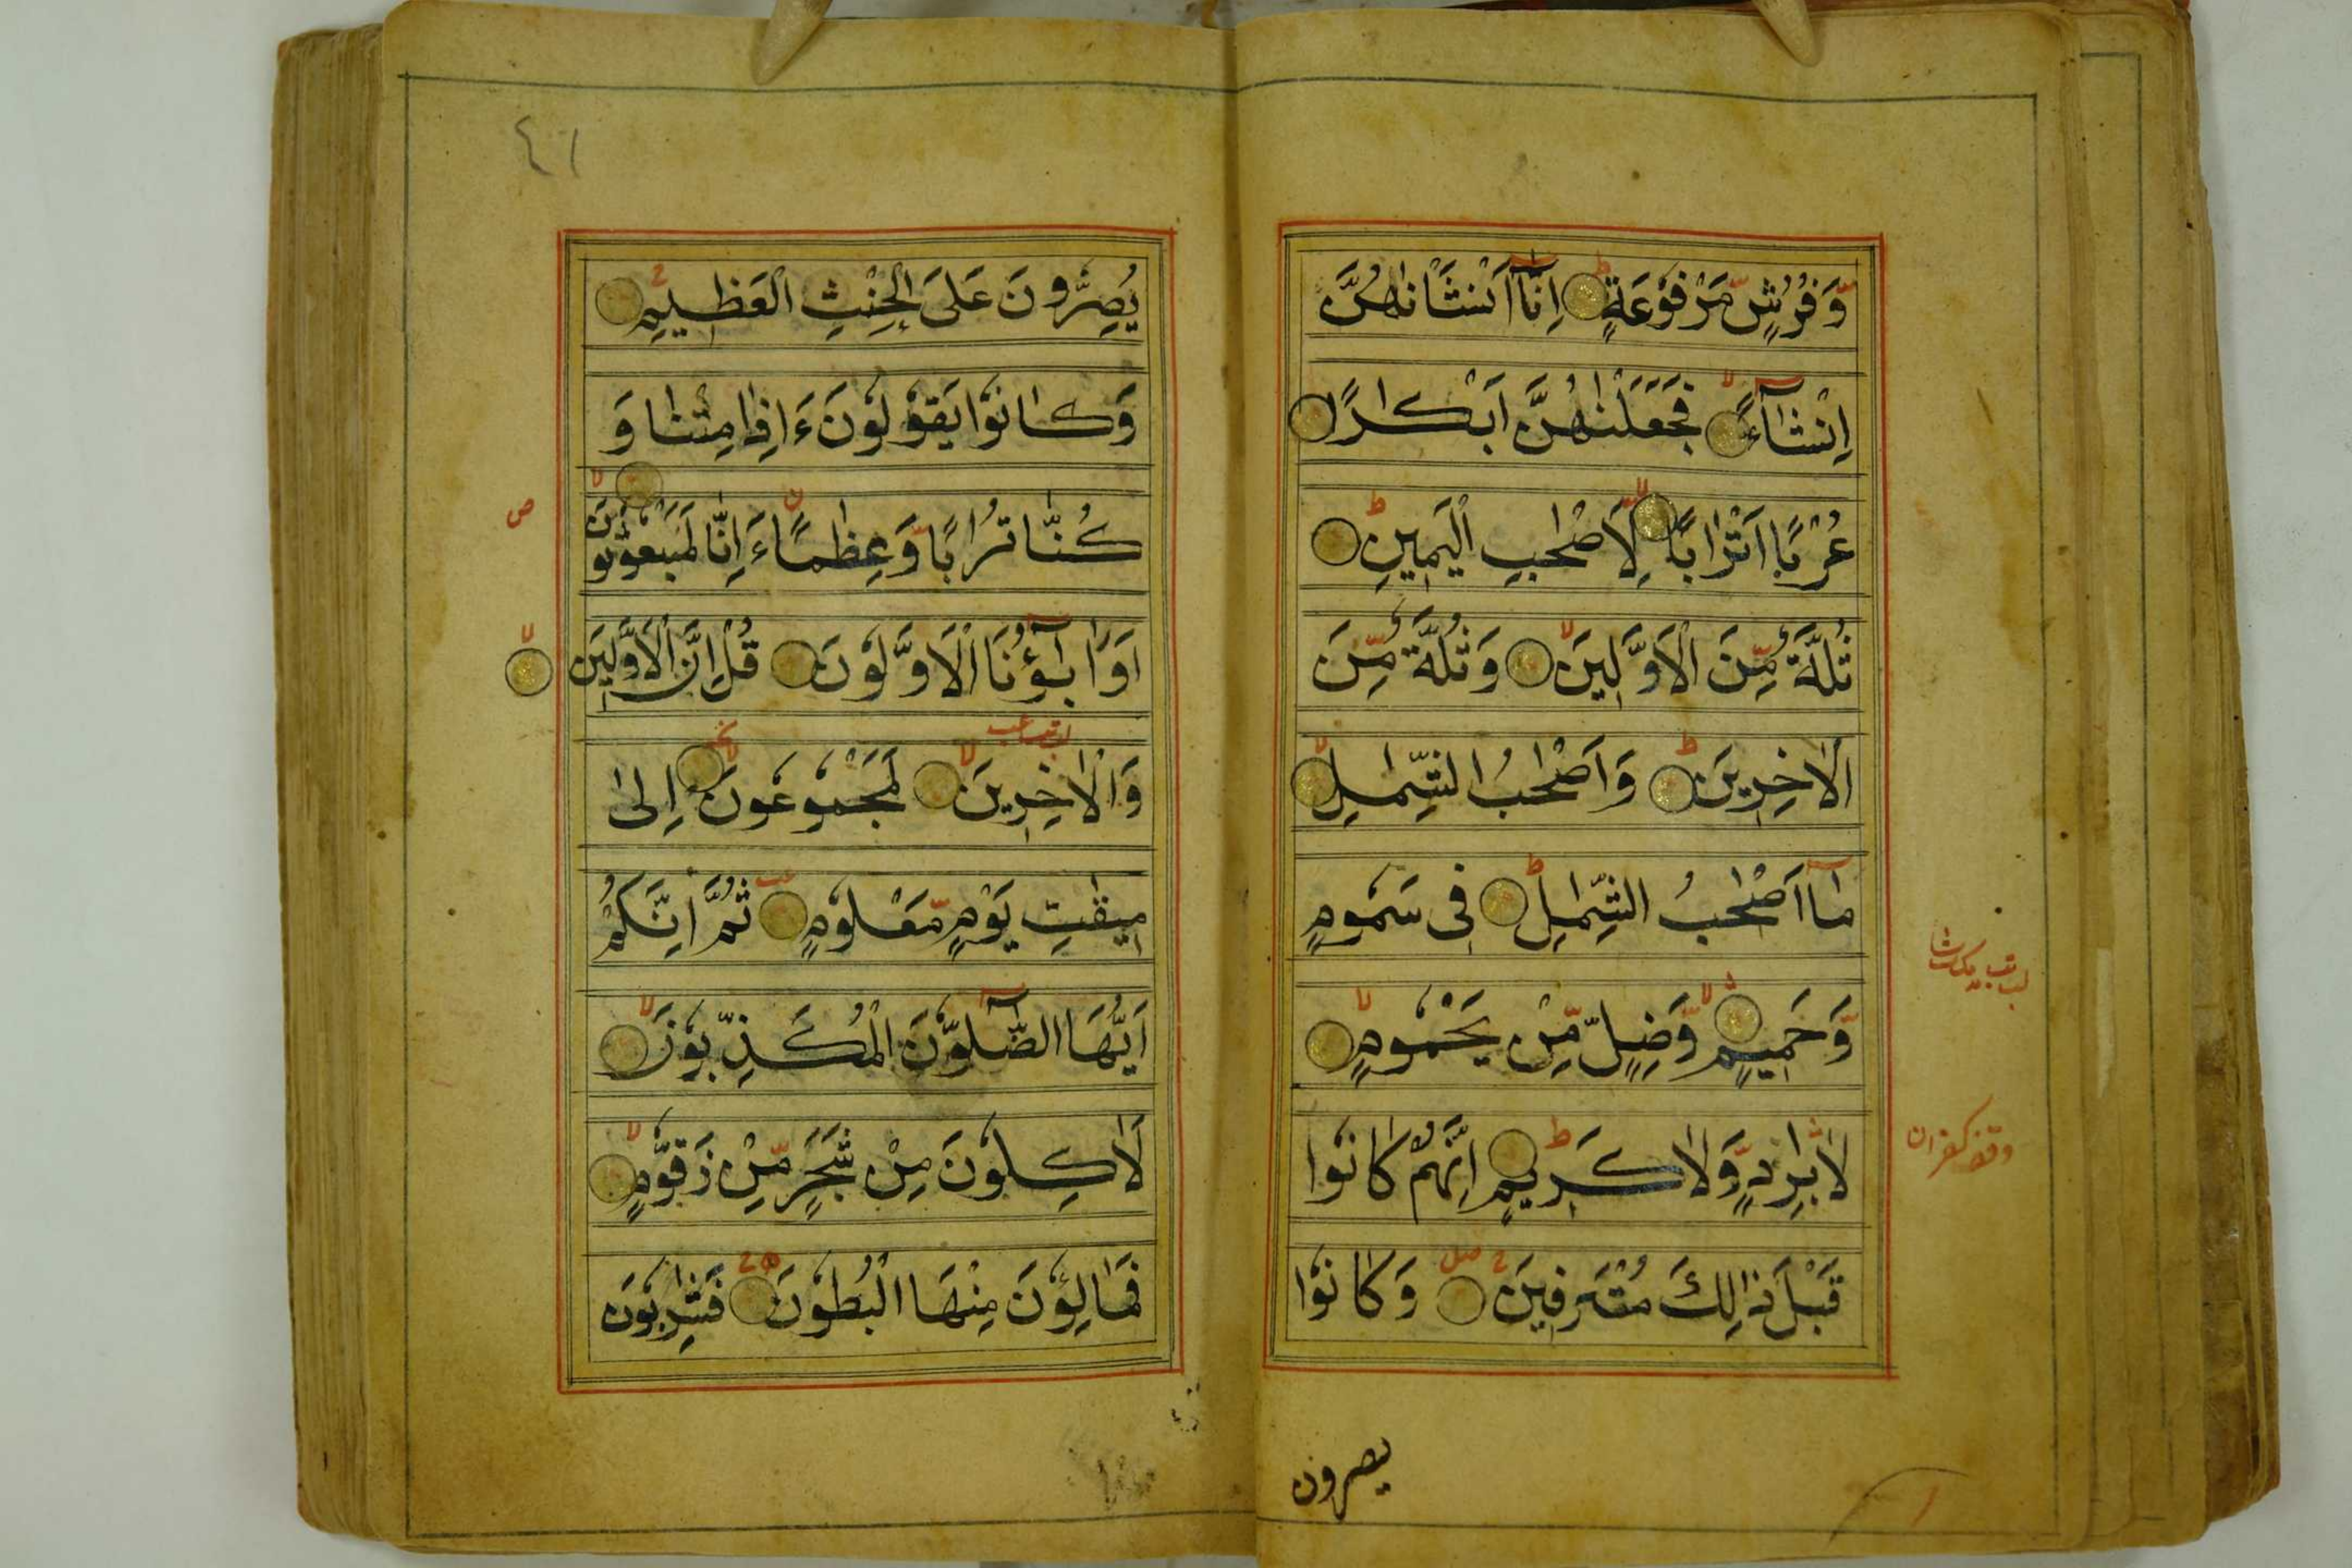 وَّفُرُشٍ مَّرْفُوْعَةٍ اِنَّآ اَنْشَاْنٰهُنَّ
اِنْشَآءً فَجَعَلْنٰهُنَّ اَبْكَارًا
عُرُبًا اَتْرَابًا لِاَصْحٰبِ الْيَمِيْنِ
ثُلَّةٌ مِّنَ الْاَوَّلِيْنَ وَثُلَّةٌ مِّنَ
الْاٰخِرِيْنَ وَاَصْحٰبُ الشِّمَالِ
مَآ اَصْحٰبُ الشِّمَالِ فِى سَمُوْمٍ
وَّحَمِيْمٍ وَّضِلٍّ مِّنْ يَحْمُوْمٍ
لَا بَارِدٍ وَّلَا كَرِيْمٍ اِنَّهُمْ كَانُوْا
قَبْلَ ذٰلِكَ مُتْرَفِيْنَ وَكَانُوْا
يصرون
٤١
يُصِرُّوْنَ عَلَى الْحِنْثِ الْعَظِيْمِ
وَكَانُوْا يَقُوْلُوْنَ ءَاِذَا مِتْنَا وَ
كُنَّا تُرَابًا وَّعِظَامًا ءَاِنَّا لَمَبْعُوْثُوْنَ
اَوَاٰبَآؤُنَا الْاَوَّلُوْنَ قُلْ اِنَّ الْاَوَّلِيْنَ
وَالْاٰخِرِيْنَ لَمَجْمُوْعُوْنَ اِلٰى
مِيْقٰتِ يَوْمٍ مَّعْلُوْمٍ ثُمَّ اِنَّكُمْ
اَيُّهَا الضَّآلُّوْنَ الْمُكَذِّبُوْنَ
لَاٰكِلُوْنَ مِنْ شَجَرٍ مِّنْ زَقُّوْمٍ
فَمَالِؤُنَ مِنْهَا الْبُطُوْنَ فَشَارِبُوْنَ